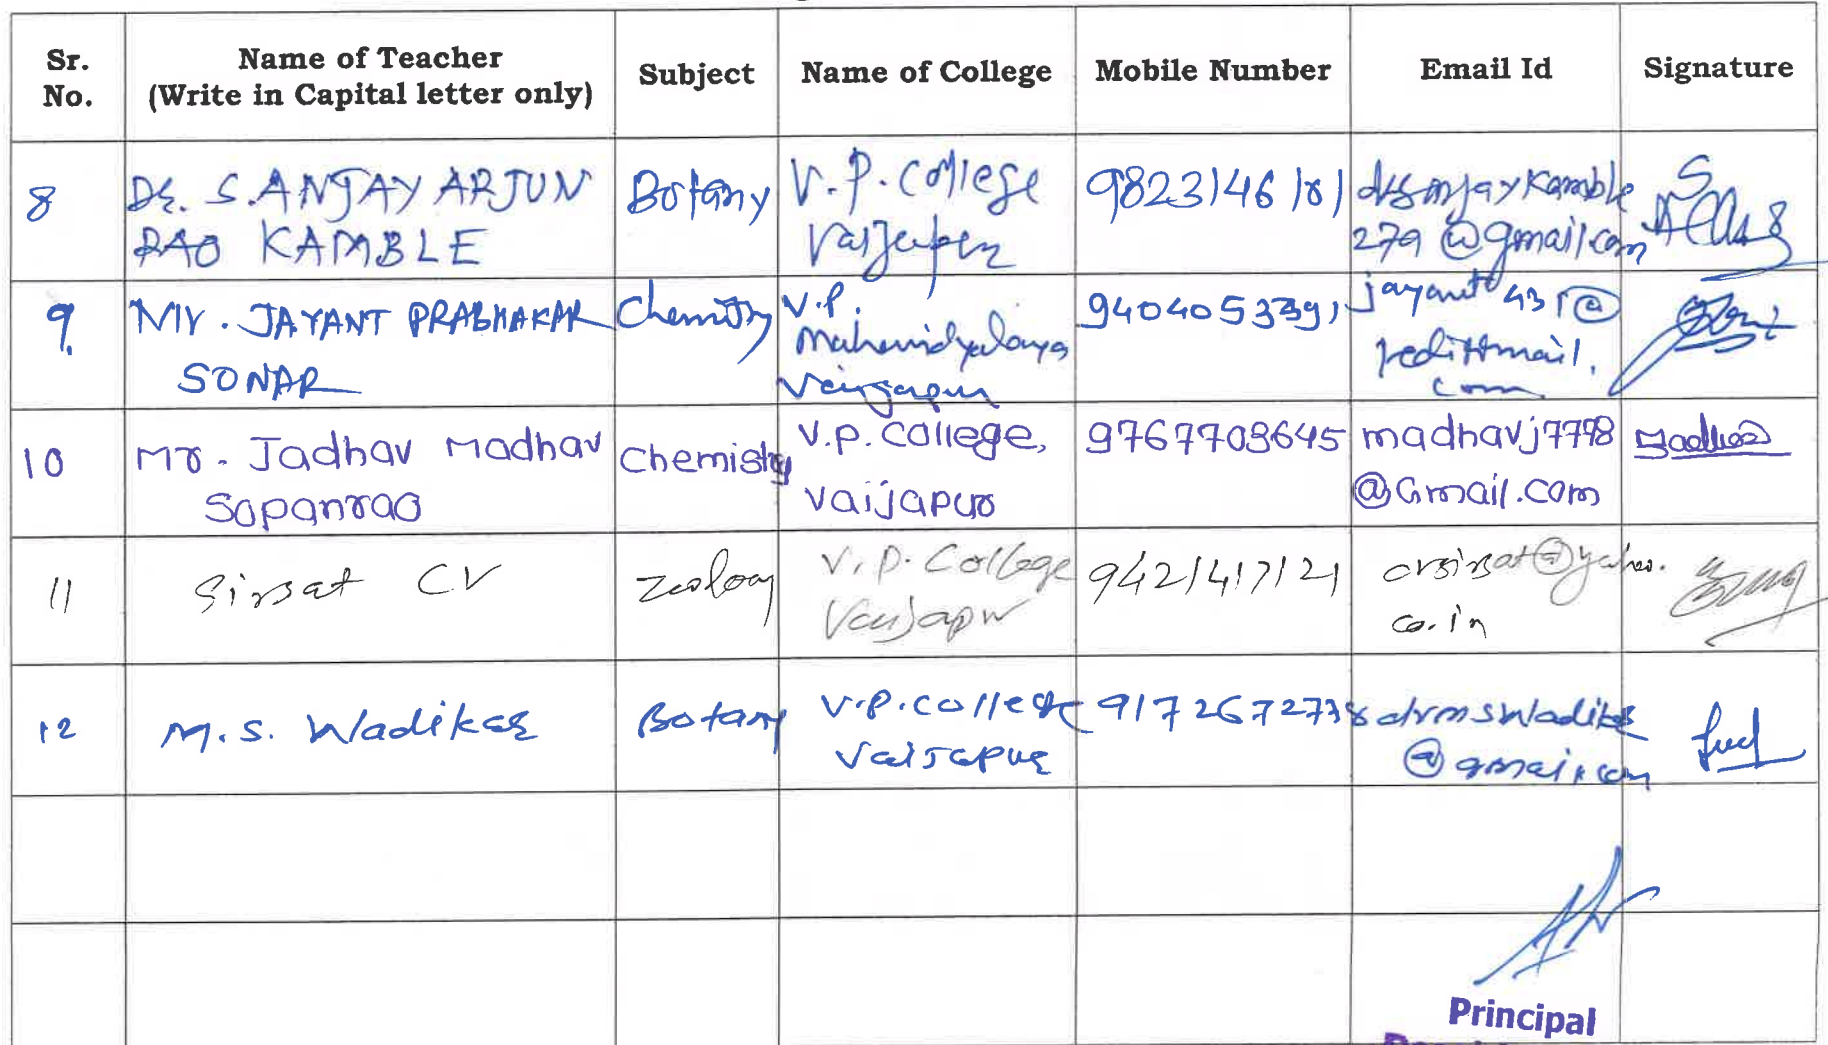 Sr. No.
Name of Teacher
(Write in Capital letter only)
Subject
Name of College
Mobile Number
Email Id
Signature
8
Dr. S.ANJAY ARJUN
RAO KAMBLE
Botany
V.P. College
Vaijapur
9823146101
drsanjaykamble
279@gmail.com
9.
Mr. JAYANT PRABHAKAR
SONAR
Chemistry
V.P.
Mahavidyalaya
Vaijapur
9404053391
jayant431@
rediffmail.
com
10
Mr. Jadhav Madhav
Sopanrao
Chemistry
V.P. College,
Vaijapur
9767708645
madhavj7798
@Gmail.com
11
Sirsat CV
Zoology
V.P. College
Vaijapur
9421417121
cvsirsat@yahoo.
co.in
12
M.S. Wadikar
Botany
V.P. College
Vaijapur
9172672738
drmswadikar
@gmail.com
Principal